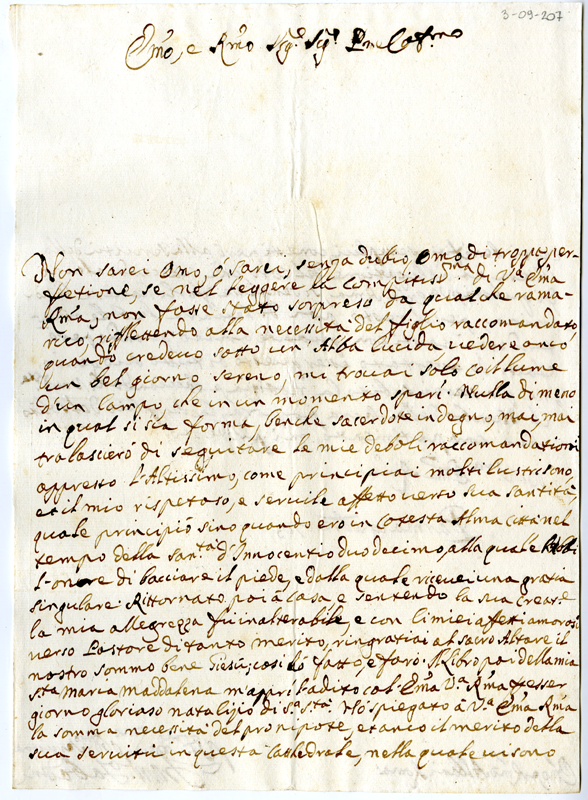 3-09-207
Emo, e Rmo Sigr. Sigr. Pne Colmo
Non sarei Omo, ó sarei, senza dubio, Omo di troppa per-
fetione, se nel leggere la compitissma di Va. Ema
Rma, non fosse stato sorpreso da qualche rama-
rico, riflettendo alla necesita del figlio raccomandato,
quando credevo sotto un' Alba lucida vedere anco
un bel giorno sereno, mi trovai solo coll lume
d'un Lampo, che in un momento sparí. Nulla di meno
in qual si sia forma, benche sacerdote indegno, mai, mai
tralascieró di seguitare le mie deboli raccomandationi
appresso l'Altissimo, come principiai molti lustri sono,
et il mio rispetoso, e servile affetto verso sua santitá
quale principió sino quando ero in cotesta Alma cittá nel
tempo della santtá d'Innocentio duodecimo, alla quale hebbi
l'onore di bacciare il piede, e dalla quale ricevei una gratia
singulare. Rittornato poi á casa, e sentendo la sua create
la mia allegrezza fu inalterabile, e con li miei affeti amorosi
verso Pastore di tanto merito, ringratiai al sacro Altare il
nostro sommo bene Giesú; cosi hó fatto, e faró. Il libro poi della mia
Sta Maria Maddalena m'aprí l'adito col Ema Va. Rma esser
giorno glorioso natalizio di Sa Stá. Hó spiegato á Va. Ema Rma
la somma necessitá del pronipote, et anco il merito della
sua servitú in questa Cattedrale, nella quale vi sono